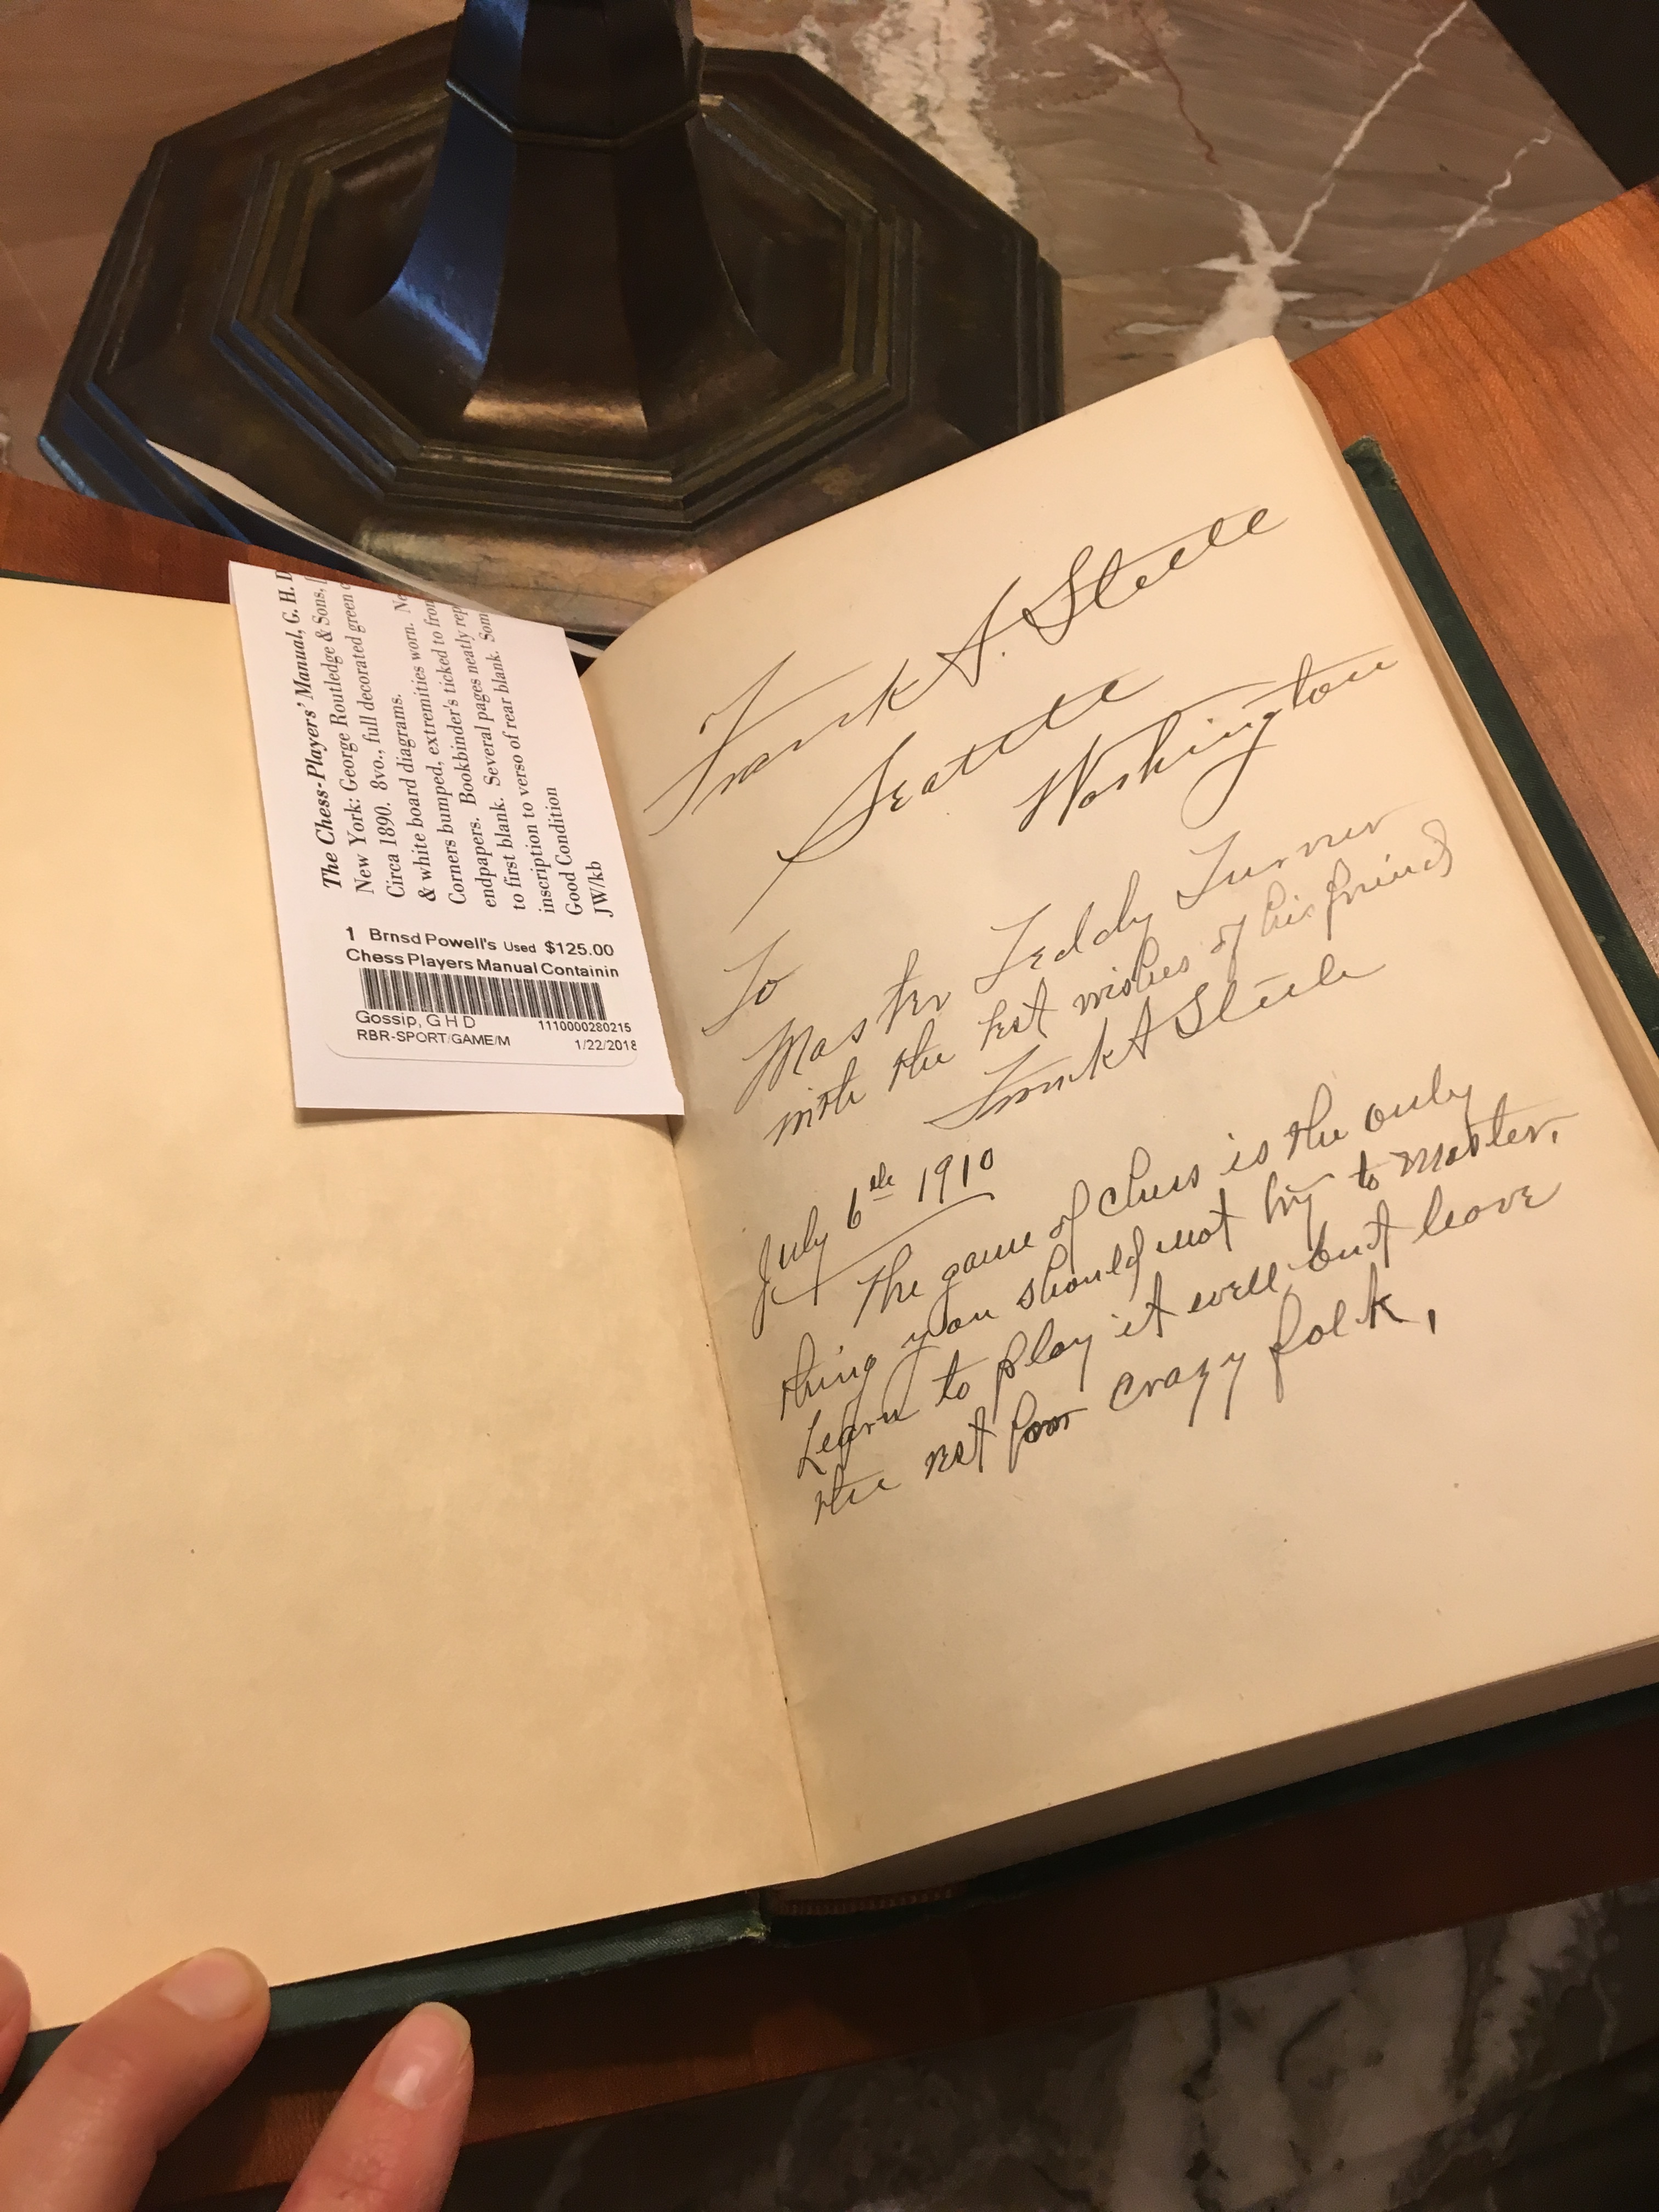 The Chess-Players' Manual, G. H. D
New York: George Routledge & Sons,
Circa 1890. 8vo., full decorated green
& white board diagrams.
Corners bumped, extremities worn. Ne
endpapers. Bookbinder's ticked to fron
to first blank. Several pages neatly rep
inscription to verso of rear blank. Som
Good Condition
JW/kb
1 Brnsd Powell's Used $125.00
Chess Players Manual Containin
Gossip, G H D 1110000280215
RBR-SPORT/GAME/M 1/22/2018
Frank A. Steele
Seattle
Washington
To
Master Teddy Turner
with the best wishes of his friend
Frank A Steele
July 6th 1910
The game of chess is the only
thing you should not try to master.
Learn to play it well, but leave
the rest for crazy folk.